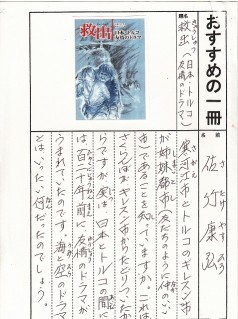 おすすめの一冊
題名
きゅうしゅつ
救出(日本・トルコ
友情のドラマ)
救出
日本・トルコ
友情のドラマ
名前
さ たけ やす ひろ
佐竹 康弘
寒河江市とトルコのギレスン市
が姉妹都市(友だちのように仲のいい
市)であることを知っていますか。二つは
さくらんぼがギレスン市からたどりついたか
らですが実は、日本とトルコの間に
は百二十年前に、友情のドラマが
うまれていたのです。海と空のドラマ
とはいったい何だったのでしょう。